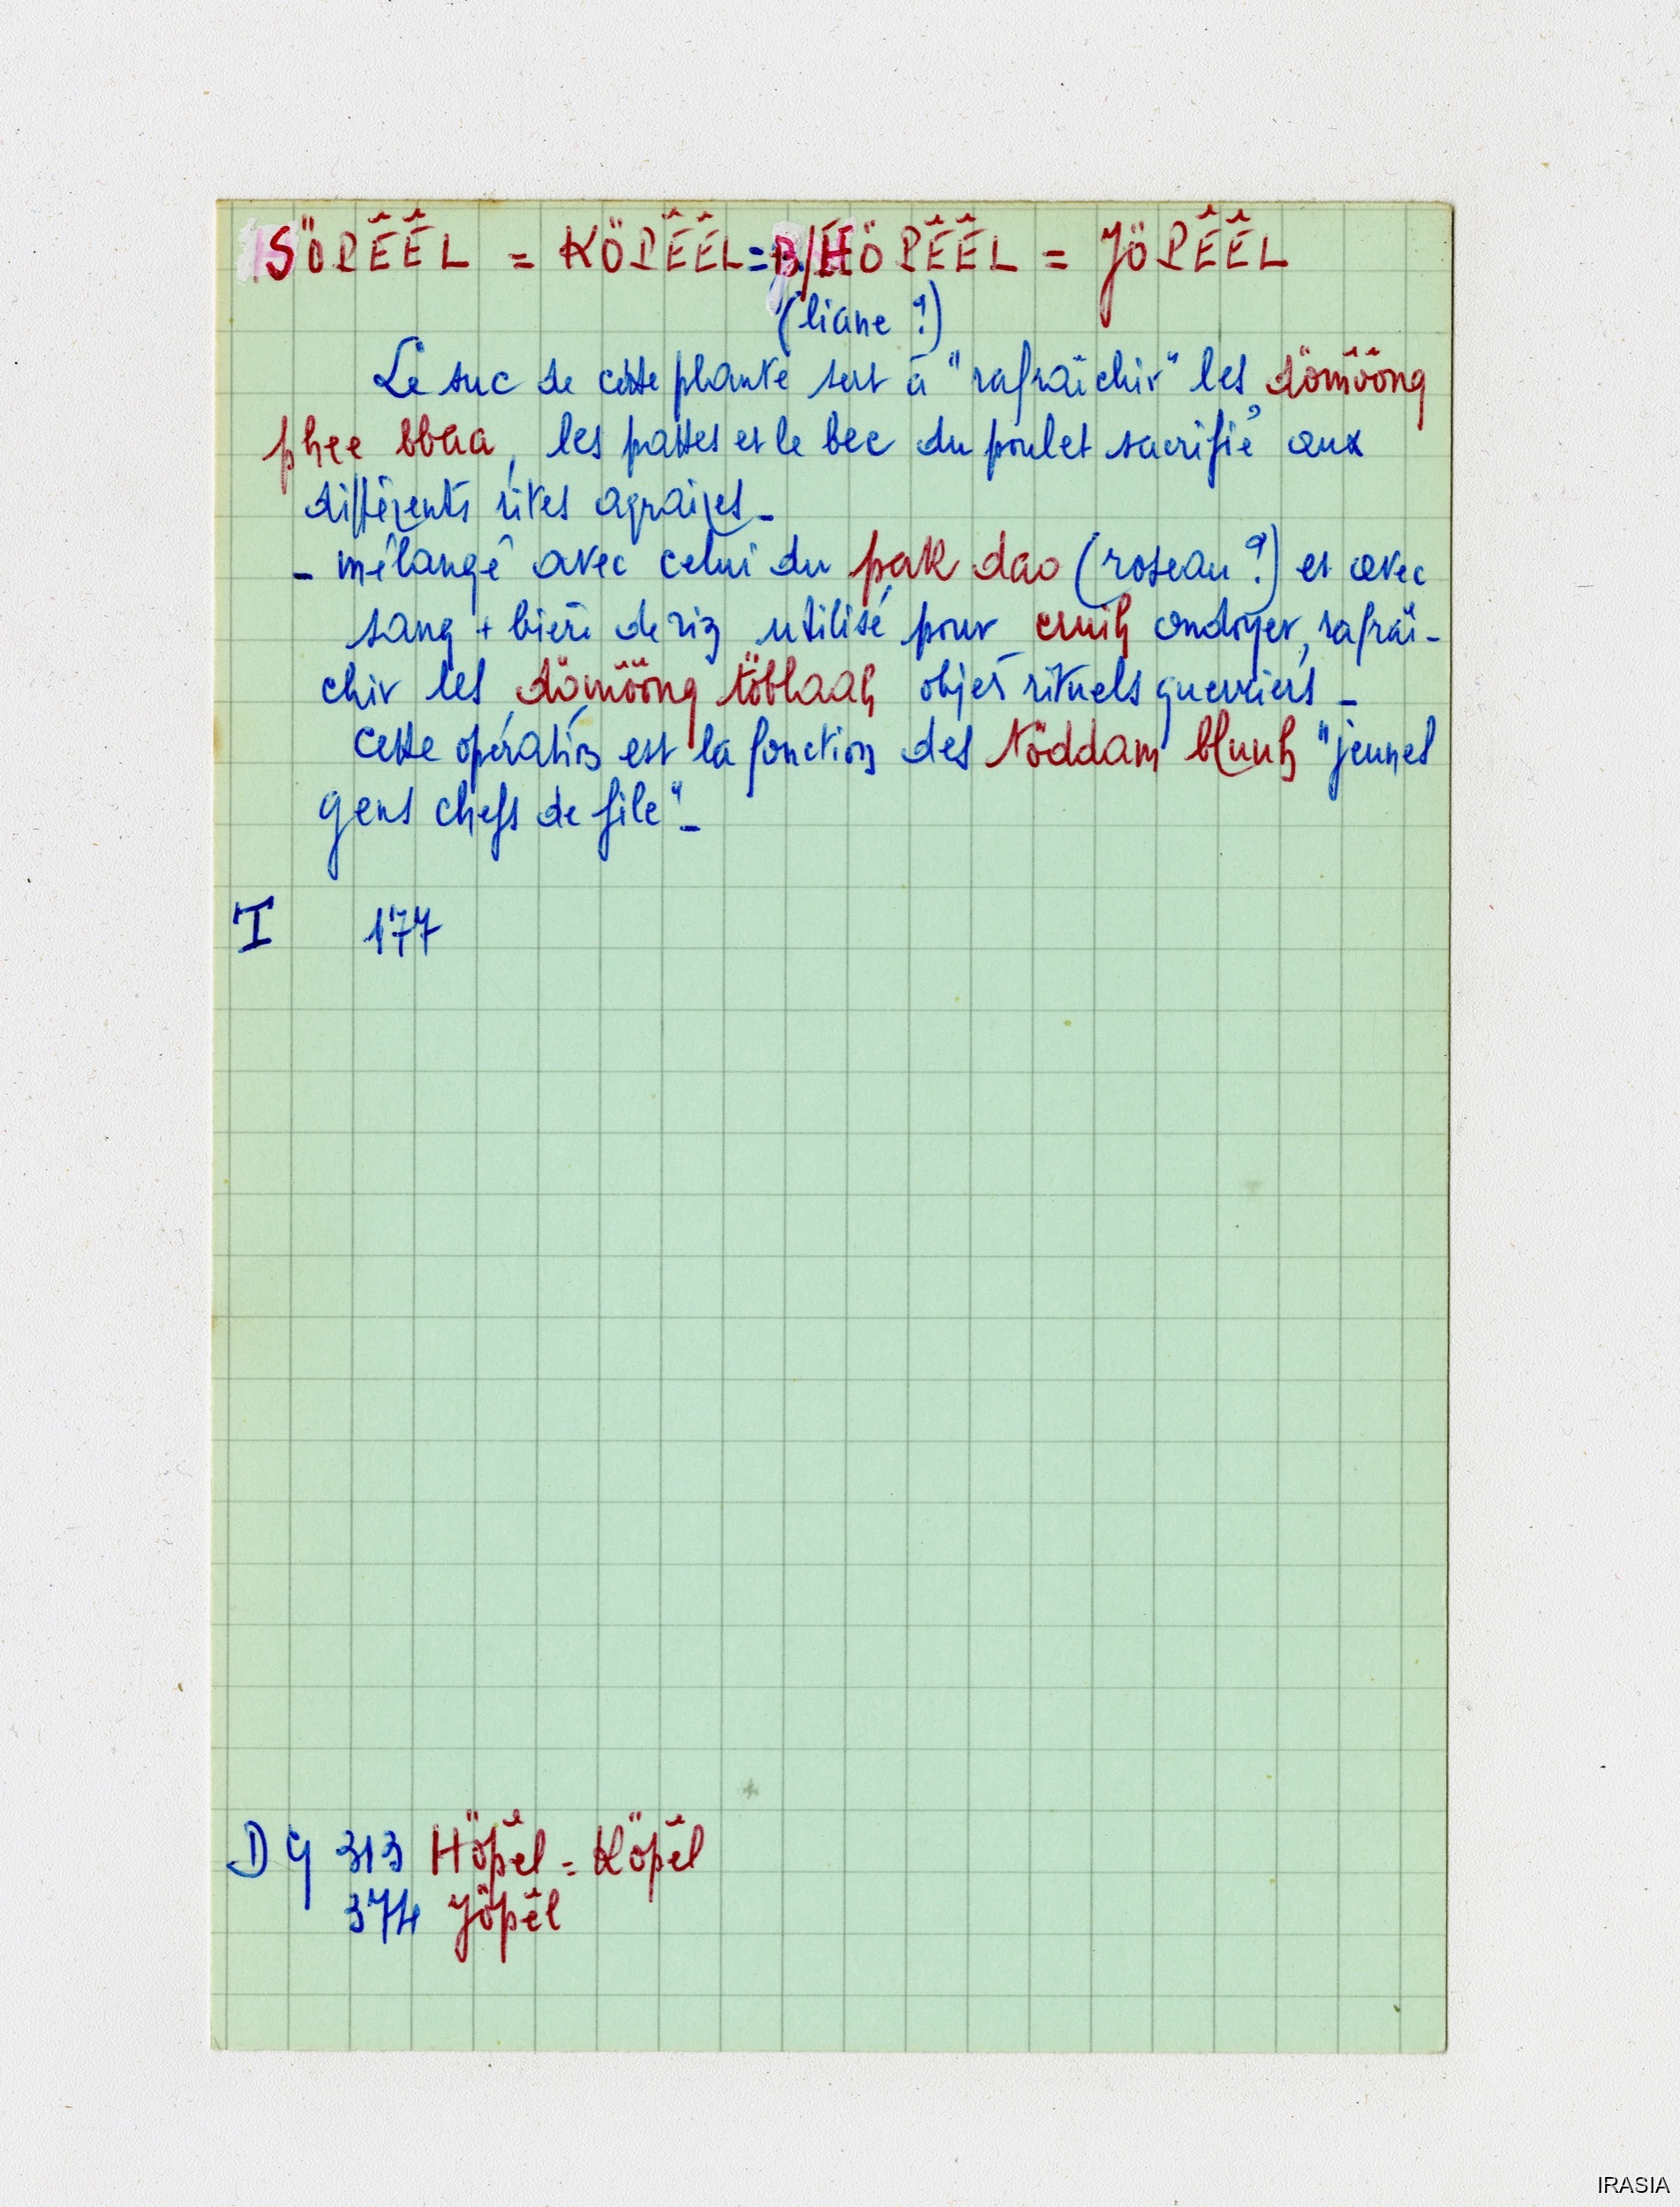 SÖPÊÊL = KÖPÊÊL = B/HÖPÊÊL = JÖPÊÊL
(liane ?)
Le suc de cette plante sert à "rafraîchir" les dömööng
phee bbaa, les pattes et le bec du poulet sacrifié aux
différents rites agraires_
_ mélangé avec celui du pak dao (roseau ?) et avec
sang + bière de riz utilisé pour cruih ondoyer, rafraî-
chir les dömööng töblaah objets rituels guerriers _
cette opération est la fonction des töddam bluuh "jeunes
gens chefs de file"_
I 177
DY 313 Höpêl = Köpêl
374 Jöpêl
IRASIA